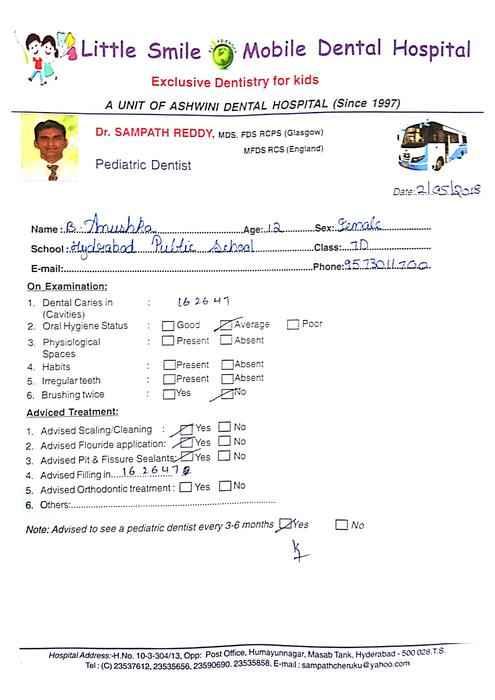 Little Smile Mobile Dental Hospital
Exclusive Dentistry for kids
A UNIT OF ASHWINI DENTAL HOSPITAL (Since 1997)
Dr. SAMPATH REDDY, MDS, FDS RCPS (Glasgow)
MFDS RCS (England)
Pediatric Dentist
Date: 2/05/2018
Name: B. Anushka Age: 12 Sex: Female
School: Hyderabad Public School Class: 7D
E-mail: Phone: 9573011700
On Examination:
1. Dental Caries in : 16 26 47
(Cavities)
2. Oral Hygiene Status : Good Average Poor
3. Physiological : Present Absent
Spaces
4. Habits : Present Absent
5. Irregular teeth : Present Absent
6. Brushing twice : Yes No
Adviced Treatment:
1. Advised Scaling/Cleaning : Yes No
2. Advised Flouride application: Yes No
3. Advised Pit & Fissure Sealants: Yes No
4. Advised Filling in 16 26 47
5. Advised Orthodontic treatment : Yes No
6. Others:
Note: Advised to see a pediatric dentist every 3-6 months Yes No
Hospital Address:-H.No. 10-3-304/13, Opp: Post Office, Humayunnagar, Masab Tank, Hyderabad - 500 028.T.S.
Tel : (C) 23537612, 23535656, 23590690. 23535858, E-mail : sampathcheruku@yahoo.com